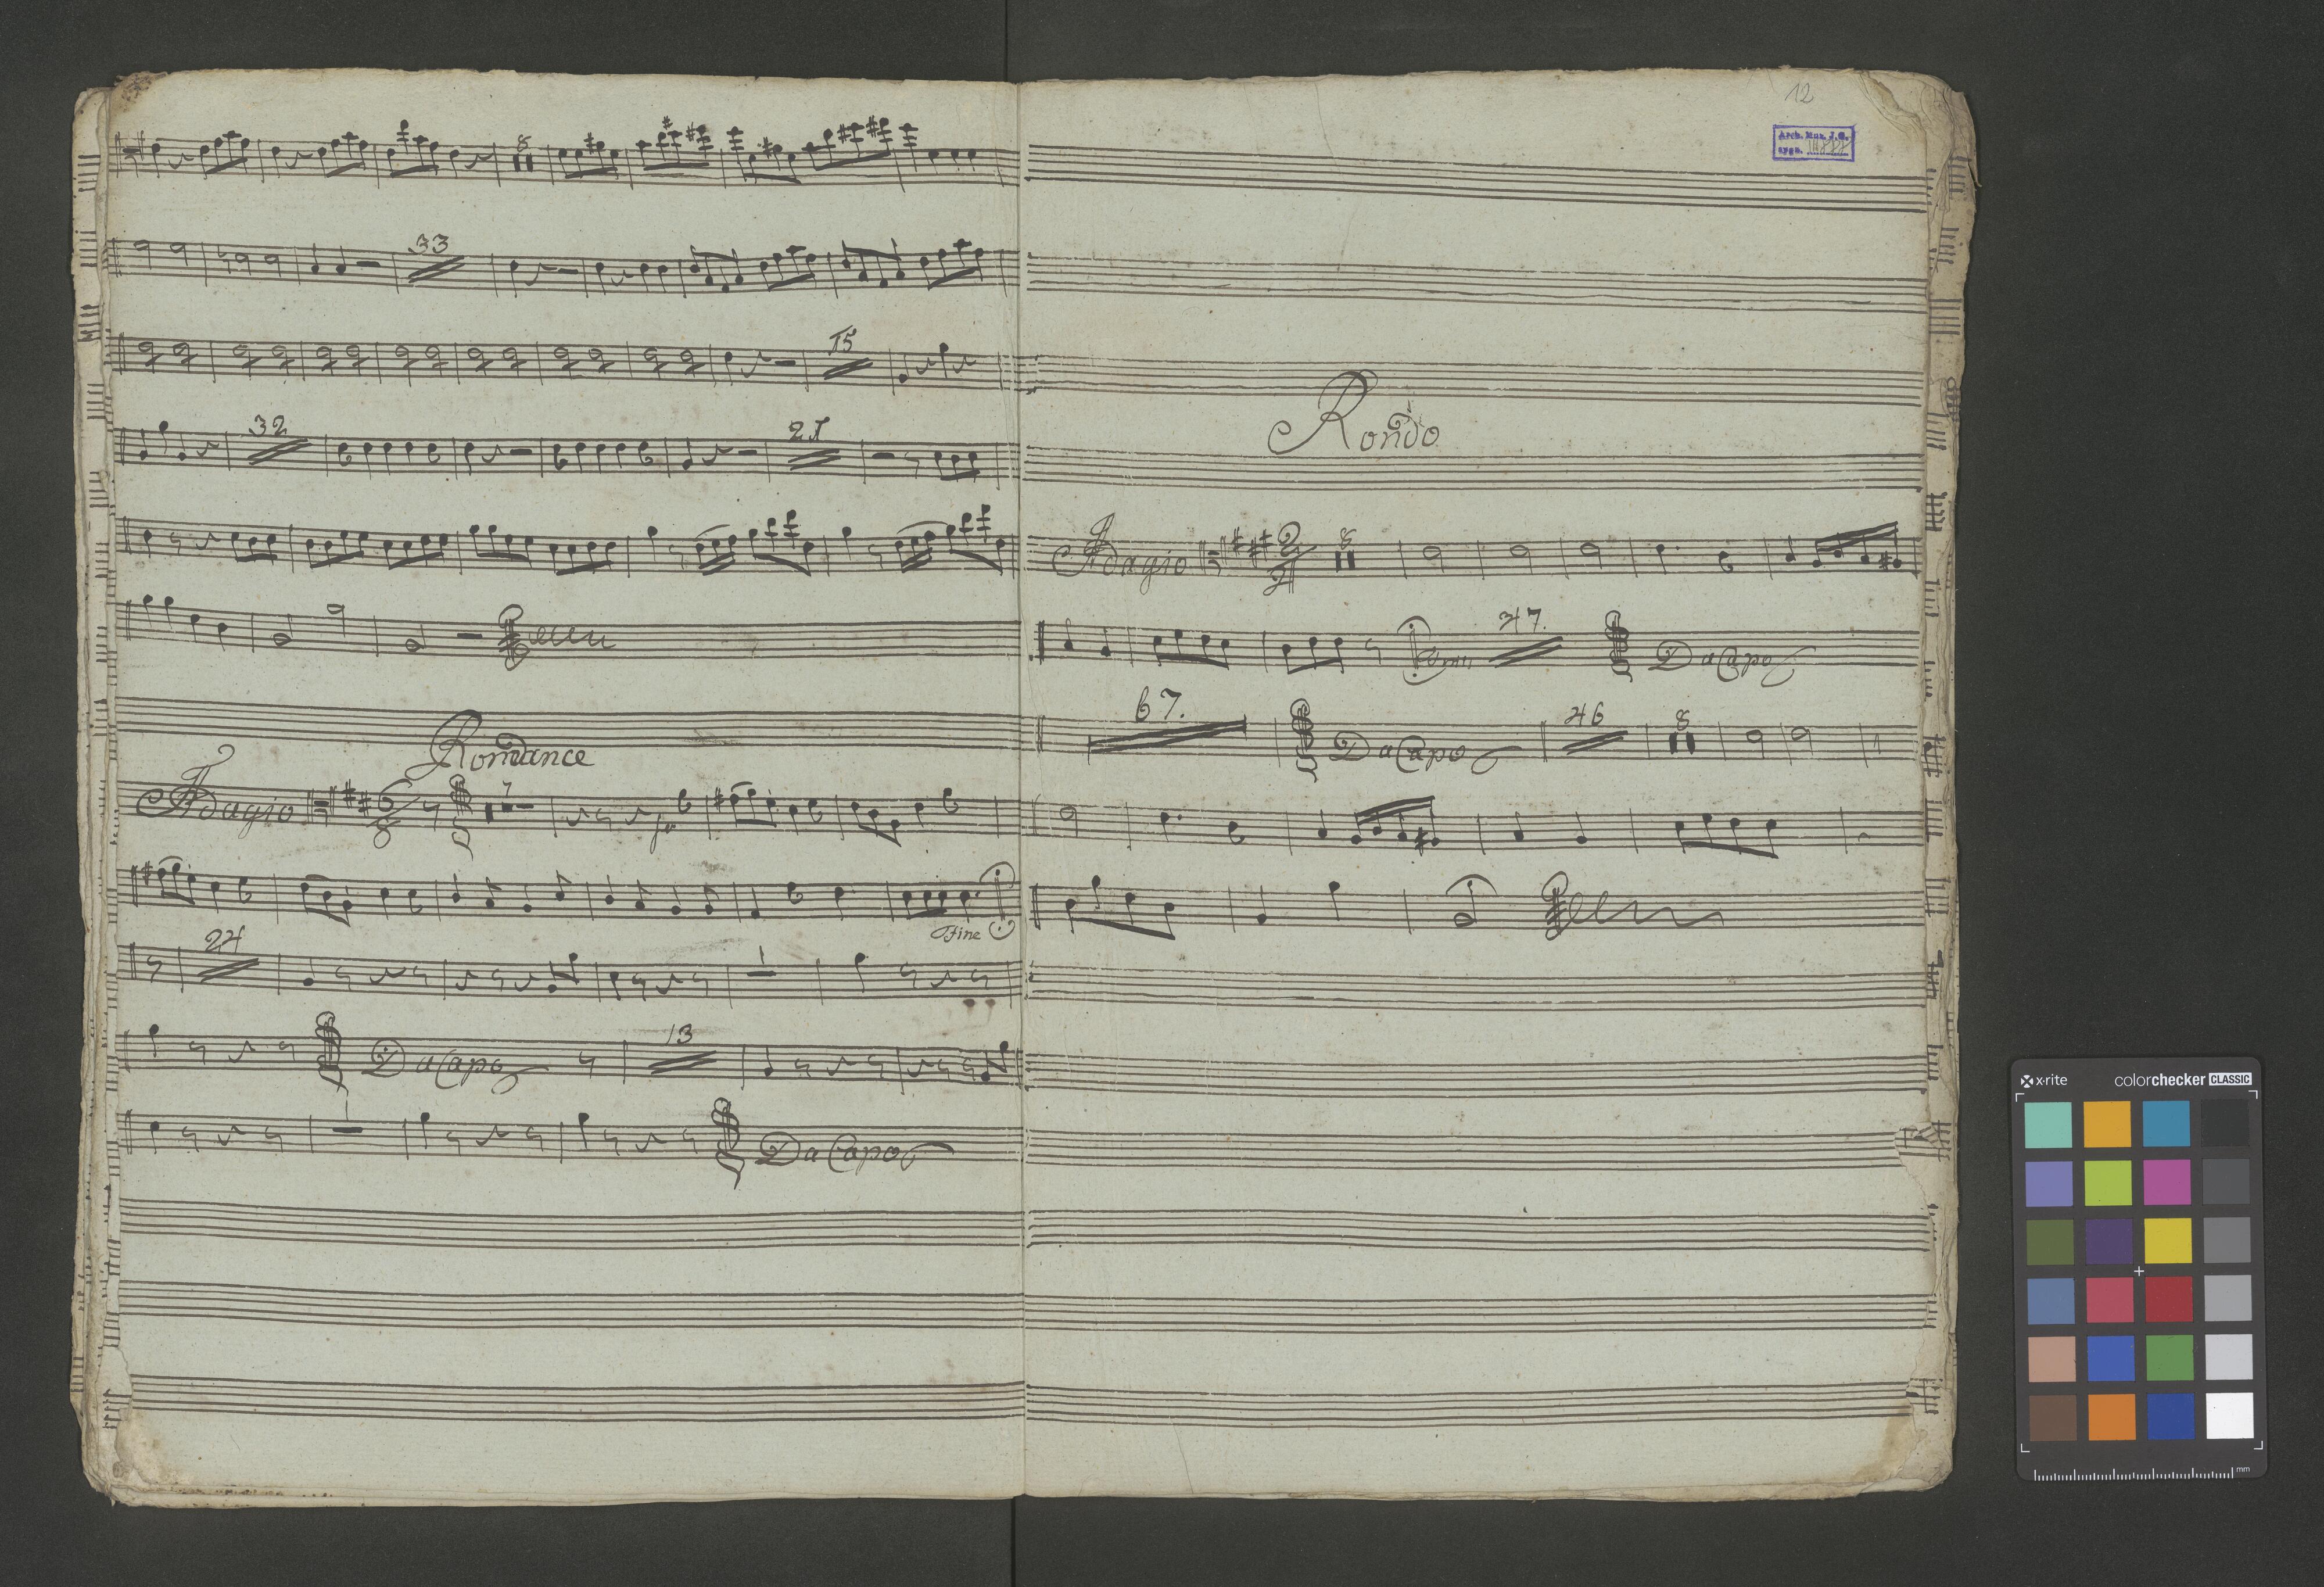 8
33
15
32
21
Romance
Adagio 6/8 7
Fine
24
Da Capo 13
Da Capo
12
Arch. Muz. J.G.
sygn.
Rondo
Adagio 2/4 8
47. Da Capo
67. Da Capo 46 8
x-rite colorchecker CLASSIC
mm